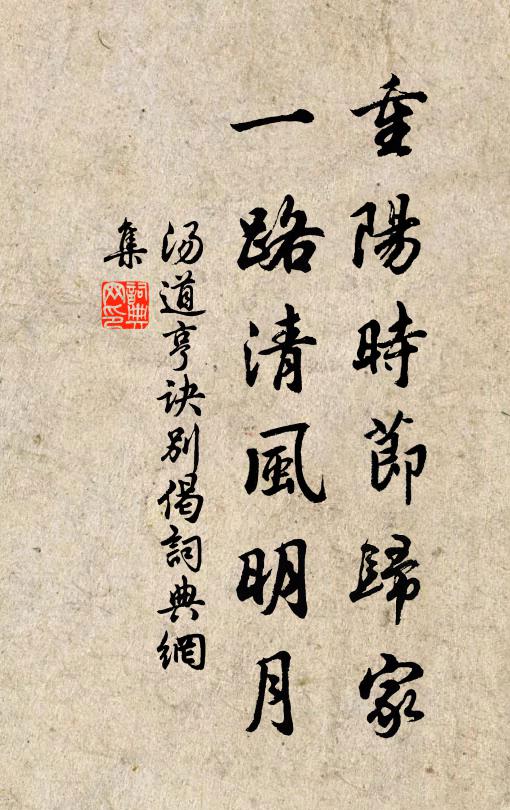 重陽時節歸家
一路清風明月
湯道亨訣別偈詞典網
集
詞典
网印